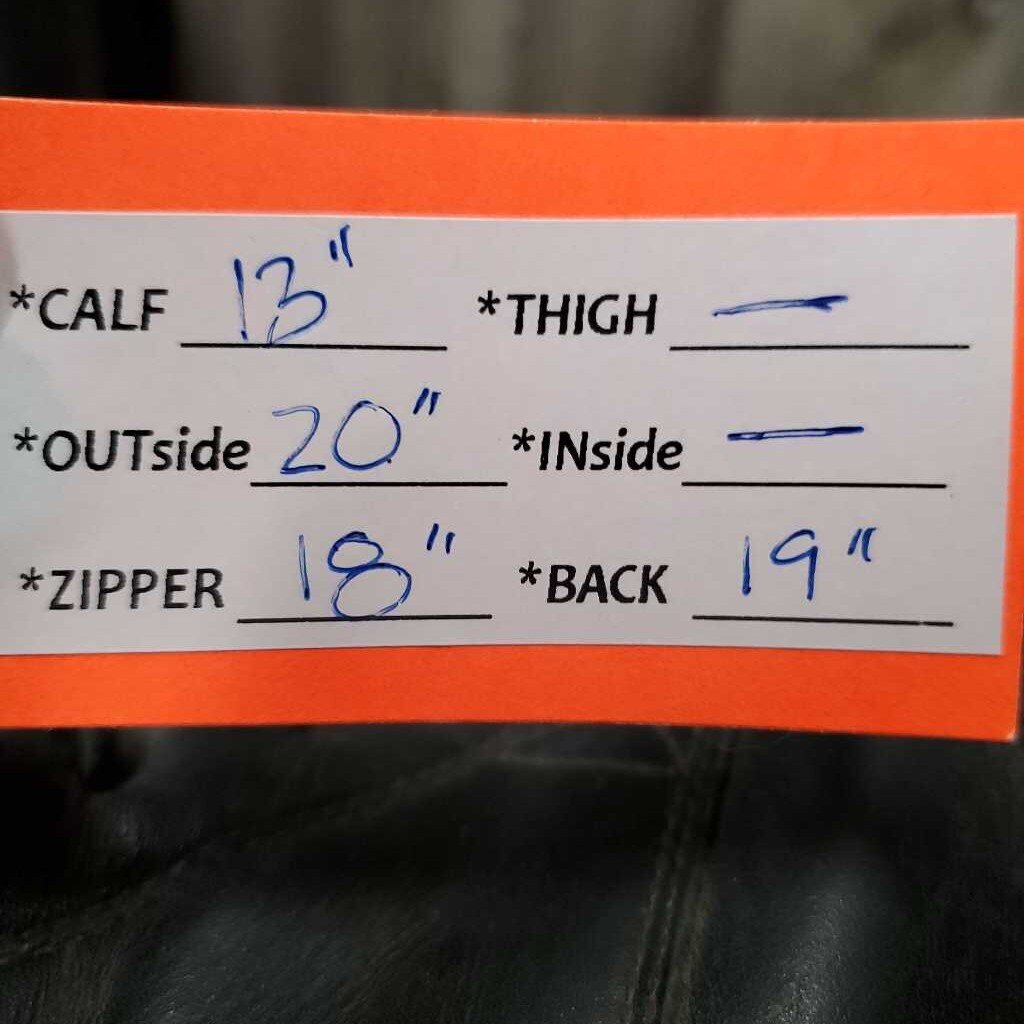 *CALF 13" *THIGH —
*OUTside 20" *INside —
*ZIPPER 18" *BACK 19"